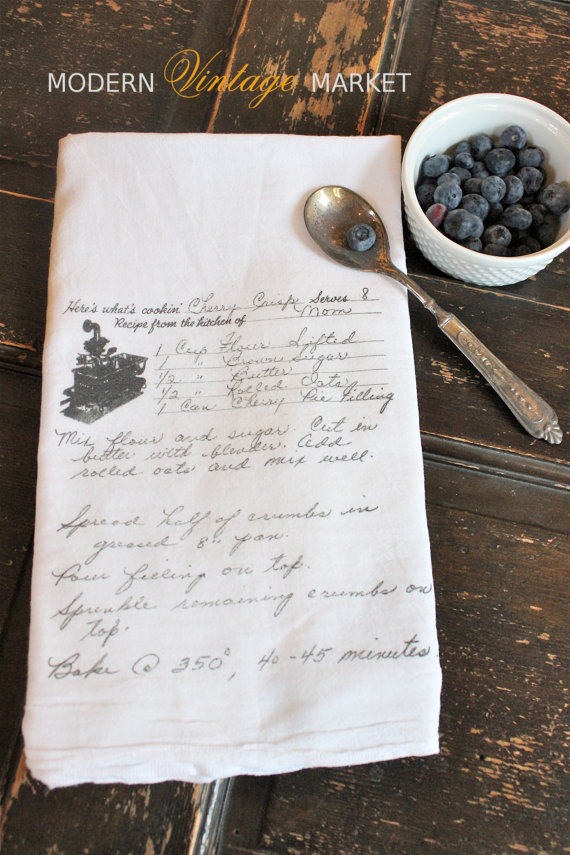 MODERN Vintage MARKET
Here's what's cookin' Cherry Crisp Serves 8
Recipe from the kitchen of Mom
1 Cup Flour Sifted
1 " Brown Sugar
1/2 " Butter
1/2 " Rolled Oats
1 Can Cherry Pie Filling
Mix flour and sugar. Cut in
butter with blender. Add
rolled oats and mix well.
Spread half of crumbs in
greased 8" pan.
Pour filling on top.
Sprinkle remaining crumbs on
top.
Bake @ 350°, 40-45 minutes.